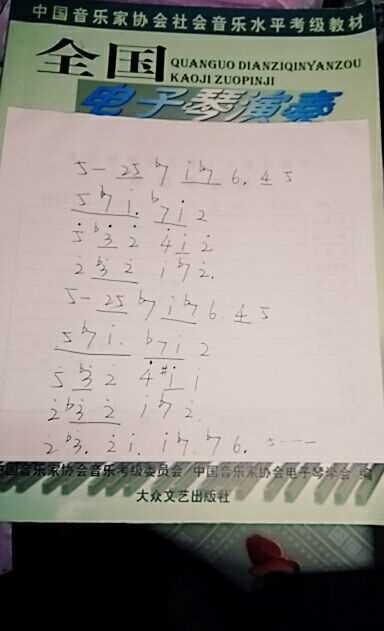 中国音乐家协会社会音乐水平考级教材
全国
QUANGUO DIANZIQINYANZOU
KAOJI ZUOPINJI
电子琴演奏
5 - 25 b7 i b7 6. 4 5
5 b7 i. b7 i 2
5 b3 2 4 i 2
2 b3 2 i b7 2.
5 - 25 b7 i b7 6 4 5
5 b7 i. b7 i 2
5 b3 2 4 #i i
2 b3 2 i b7 2
2 b3. 2 i. i b7. b7 6. 5 - - -
国音乐家协会音乐考级委员会 中国音乐家协会电子琴学会 编
大众文艺出版社